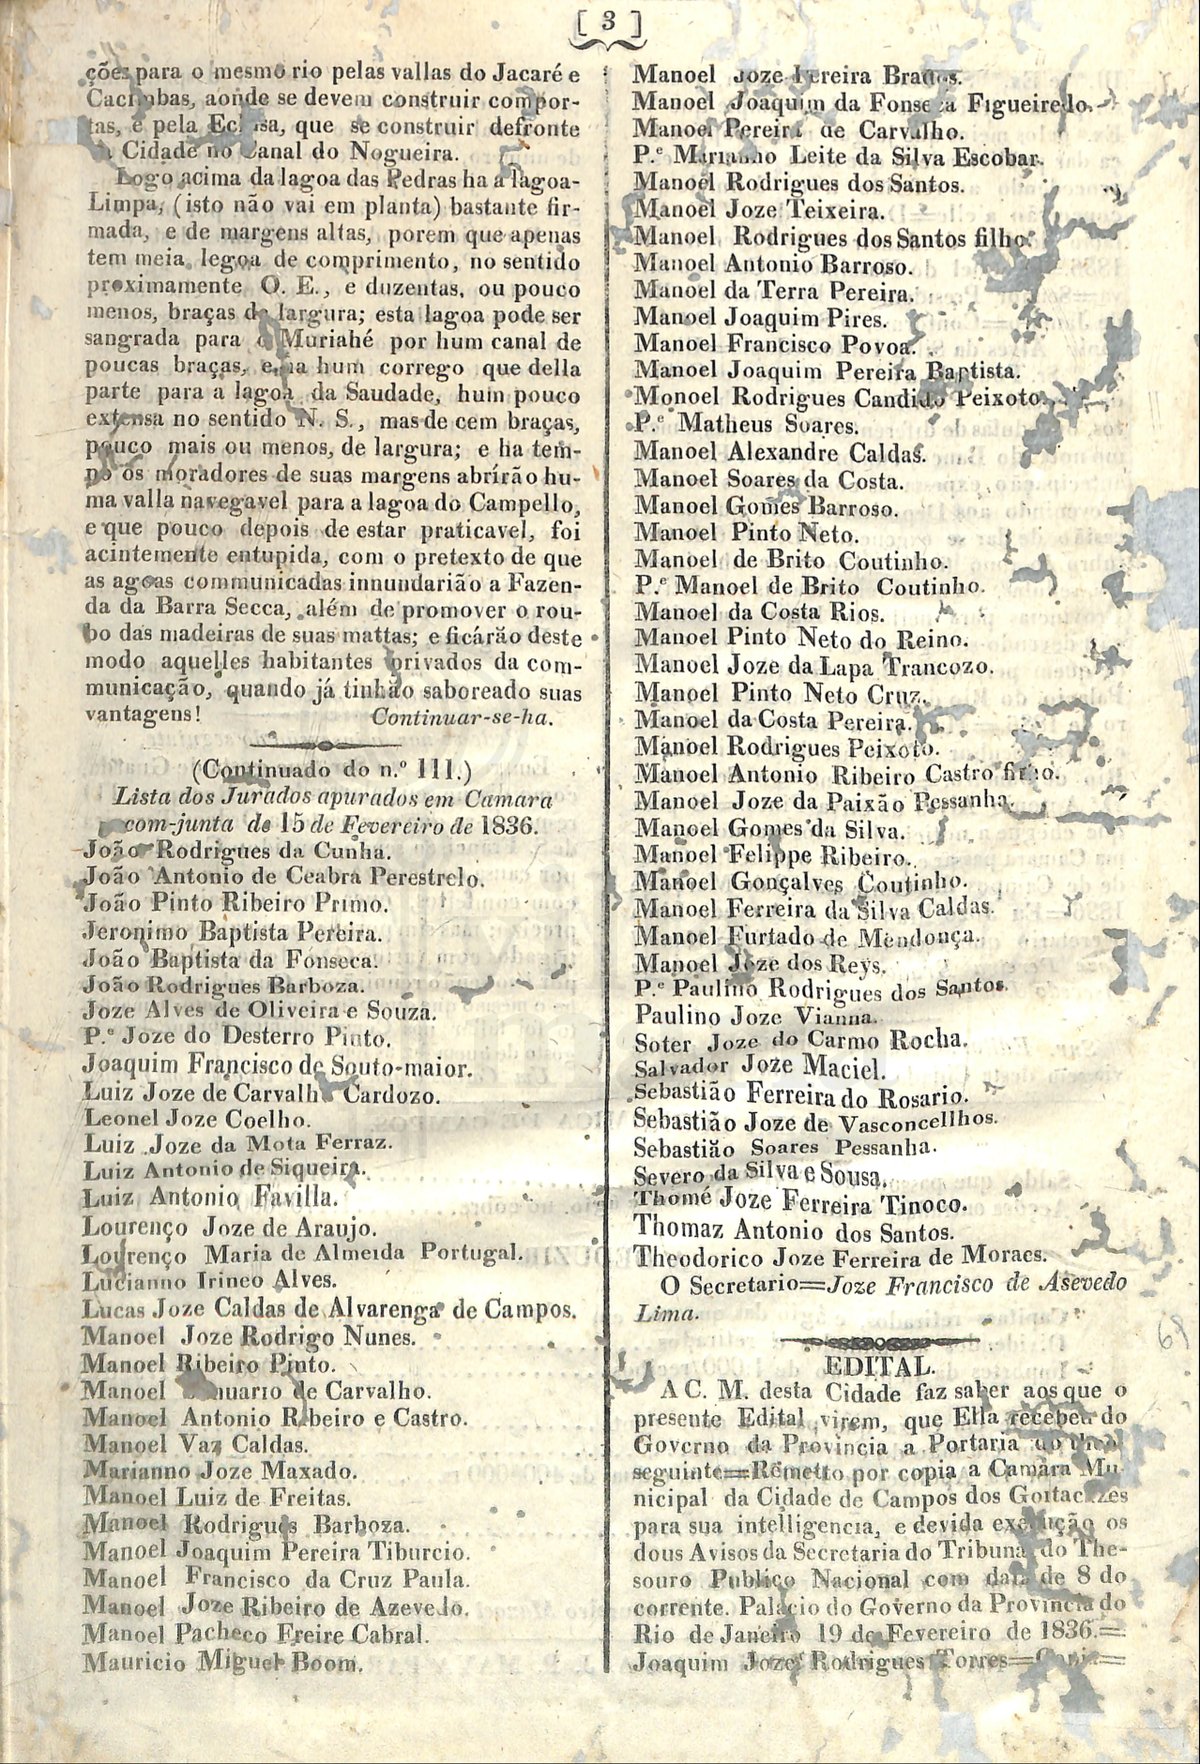 [ 3 ]
ções para o mesmo rio pelas vallas do Jacaré e
Cacimbas, aonde se devem construir compor-
tas, e pela Eclusa, que se construir defronte
Cidade no Canal do Nogueira.
Logo acima da lagoa das Pedras ha a lagoa-
Limpa, (isto não vai em planta) bastante fir-
mada, e de margens altas, porem que apenas
tem meia legoa de comprimento, no sentido
proximamente O. E., e duzentas, ou pouco
menos, braças de largura; esta lagoa pode ser
sangrada para o Muriahé por hum canal de
poucas braças, e ha hum corrego que della
parte para a lagoa da Saudade, hum pouco
extensa no sentido N. S., mas de cem braças,
pouco mais ou menos, de largura; e ha tem-
po os moradores de suas margens abrírão hu-
ma valla navegavel para a lagoa do Campello,
e que pouco depois de estar praticavel, foi
acintemente entupida, com o pretexto de que
as agoas communicadas innundarião a Fazen-
da da Barra Secca, além de promover o rou-
bo das madeiras de suas mattas; e ficárão deste
modo aquelles habitantes privados da com-
municação, quando já tinhão saboreado suas
vantagens! Continuar-se-ha.
(Continuado do n.º 111.)
Lista dos Jurados apurados em Camara
com-junta de 15 de Fevereiro de 1836.
João Rodrigues da Cunha.
João Antonio de Ceabra Perestrelo.
João Pinto Ribeiro Primo.
Jeronimo Baptista Pereira.
João Baptista da Fonseca.
João Rodrigues Barboza.
Joze Alves de Oliveira e Souza.
P.e Joze do Desterro Pinto.
Joaquim Francisco de Souto-maior.
Luiz Joze de Carvalho Cardozo.
Leonel Joze Coelho.
Luiz Joze da Mota Ferraz.
Luiz Antonio de Siqueira.
Luiz Antonio Favilla.
Lourenço Joze de Araujo.
Lourenço Maria de Almeida Portugal.
Lucianno Irineo Alves.
Lucas Joze Caldas de Alvarenga de Campos.
Manoel Joze Rodrigo Nunes.
Manoel Ribeiro Pinto.
Manoel Januario de Carvalho.
Manoel Antonio Ribeiro e Castro.
Manoel Vaz Caldas.
Marianno Joze Maxado.
Manoel Luiz de Freitas.
Manoel Rodrigues Barboza.
Manoel Joaquim Pereira Tiburcio.
Manoel Francisco da Cruz Paula.
Manoel Joze Ribeiro de Azevedo.
Manoel Pacheco Freire Cabral.
Mauricio Miguel Boom.
Manoel Joze Pereira Brados.
Manoel Joaquim da Fonseca Figueiredo.
Manoel Pereira de Carvalho.
P.e Marianno Leite da Silva Escobar.
Manoel Rodrigues dos Santos.
Manoel Joze Teixeira.
Manoel Rodrigues dos Santos filho.
Manoel Antonio Barroso.
Manoel da Terra Pereira.
Manoel Joaquim Pires.
Manoel Francisco Povoa.
Manoel Joaquim Pereira Baptista.
Monoel Rodrigues Candido Peixoto.
P.e Matheus Soares.
Manoel Alexandre Caldas.
Manoel Soares da Costa.
Manoel Gomes Barroso.
Manoel Pinto Neto.
Manoel de Brito Coutinho.
P.e Manoel de Brito Coutinho.
Manoel da Costa Rios.
Manoel Pinto Neto do Reino.
Manoel Joze da Lapa Trancozo.
Manoel Pinto Neto Cruz.
Manoel da Costa Pereira.
Manoel Rodrigues Peixoto.
Manoel Antonio Ribeiro Castro filho.
Manoel Joze da Paixão Pessanha.
Manoel Gomes da Silva.
Manoel Felippe Ribeiro.
Manoel Gonçalves Coutinho.
Manoel Ferreira da Silva Caldas.
Manoel Furtado de Mendonça.
Manoel Joze dos Reys.
P.e Paulino Rodrigues dos Santos.
Paulino Joze Vianna.
Soter Joze do Carmo Rocha.
Salvador Joze Maciel.
Sebastião Ferreira do Rosario.
Sebastião Joze de Vasconcellhos.
Sebastião Soares Pessanha.
Severo da Silva e Sousa.
Thomé Joze Ferreira Tinoco.
Thomaz Antonio dos Santos.
Theodorico Joze Ferreira de Moraes.
O Secretario=Joze Francisco de Asevedo
Lima.
EDITAL.
A C. M. desta Cidade faz saber aos que o
presente Edital virem, que Ella recebeu do
Governo da Provincia a Portaria do theor
seguinte=Remetto por copia a Camara Mu-
nicipal da Cidade de Campos dos Goitacazes
para sua intelligencia, e devida execução os
dous Avisos da Secretaria do Tribunal do The-
souro Publico Nacional com data de 8 do
corrente. Palacio do Governo da Provincia do
Rio de Janeiro 19 de Fevereiro de 1836.=
Joaquim Joze Rodrigues Torres=Copia=